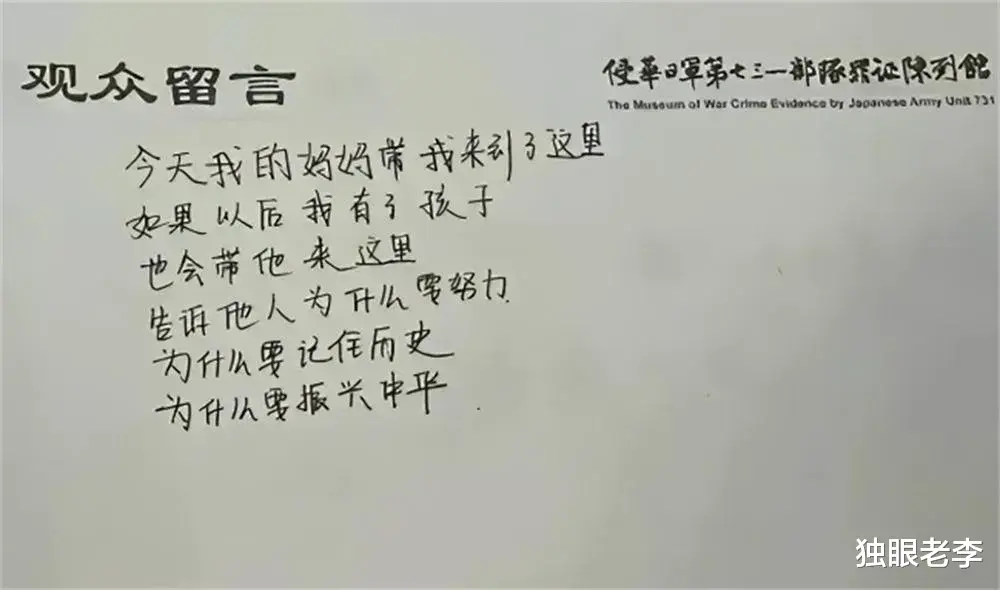 观众留言
侵華日軍第七三一部隊罪证陳列館
The Museum of War Crime Evidence by Japanese Army Unit 731
今天我的妈妈带我来到了这里
如果以后我有了孩子
也会带他来这里
告诉他人为什么要努力
为什么要记住历史
为什么要振兴中华
独眼老李